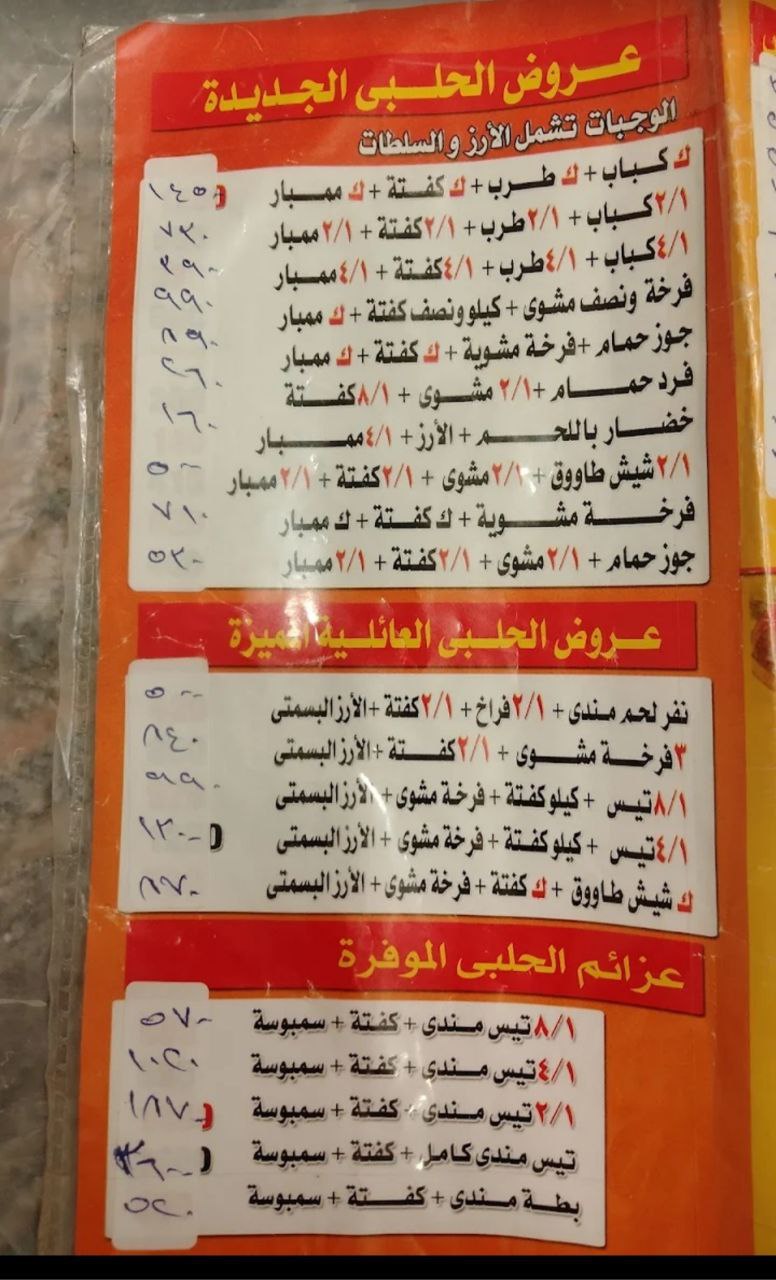 عروض الحلبى الجديدة
الوجبات تشمل الأرز والسلطات
ك كباب + ك طرب + ك كفتة + ك ممبار ١٤٥٠
٢/١ كباب + ٢/١ طرب + ٢/١ كفتة + ٢/١ ممبار ٧٣٠
٤/١ كباب + ٤/١ طرب + ٤/١ كفتة + ٤/١ ممبار ٣٩٠
فرخة ونصف مشوى + كيلو ونصف كفتة + ك ممبار ٩٩٠
جوز حمام + فرخة مشوية + ك كفتة + ك ممبار ٨٩٠
فرد حمام + ٢/١ مشوى + ٨/١ كفتة ٢٦٠
خضار باللحم + الأرز + ٤/١ ممبار ١٦٠
٢/١ شيش طاووق + ٢/١ مشوى + ٢/١ كفتة + ٢/١ ممبار ٥٠٠
فرخة مشوية + ك كفتة + ك ممبار ٧١٠
جوز حمام + ٢/١ مشوى + ٢/١ كفتة + ٢/١ ممبار ٥٣٠
عروض الحلبى العائلية المميزة
نفر لحم مندى + ٢/١ فراخ + ٢/١ كفتة + الأرز البسمتى ٥٠٠
٣ فرخة مشوى + ٢/١ كفتة + الأرز البسمتى ٨٤٠
٨/١ تيس + كيلو كفتة + فرخة مشوى + الأرز البسمتى ٩٩٠
٤/١ تيس + كيلو كفتة + فرخة مشوى + الأرز البسمتى ١٣٠٠
ك شيش طاووق + ك كفتة + فرخة مشوى + الأرز البسمتى ٨٧٠
عزائم الحلبى الموفرة
٨/١ تيس مندى + كفتة + سمبوسة ٥٧٠
٤/١ تيس مندى + كفتة + سمبوسة ١٠٢٠
٢/١ تيس مندى + كفتة + سمبوسة ١٨٧٠
تيس مندى كامل + كفتة + سمبوسة ٣٦٠٠
بطة مندى + كفتة + سمبوسة ٥٢٠